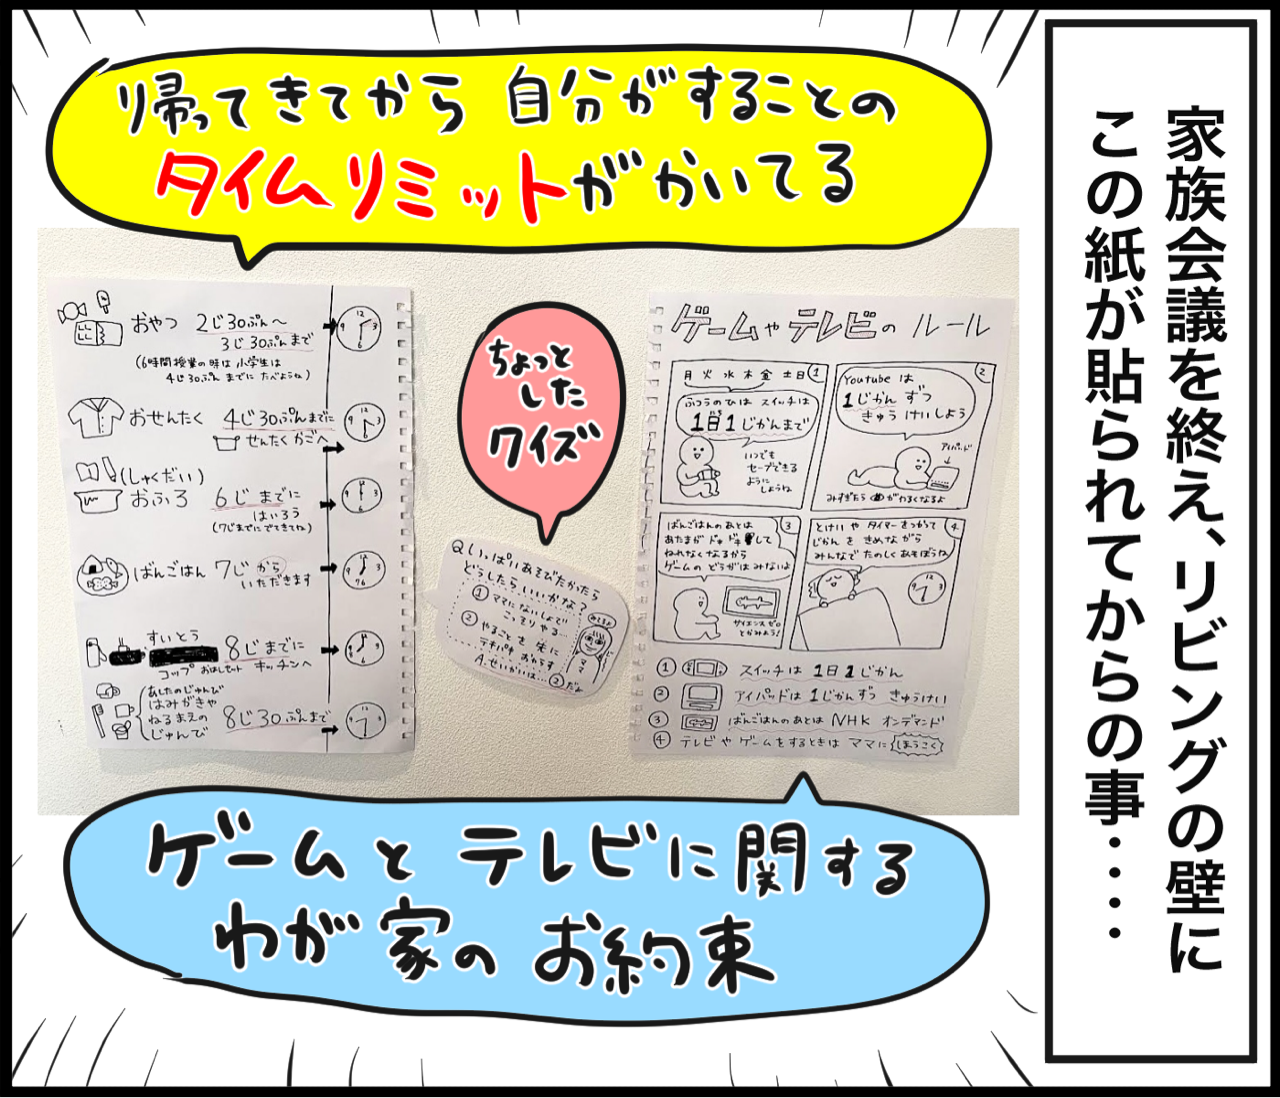 家族会議を終え、リビングの壁に
この紙が貼られてからの事‥‥
帰ってきてから 自分がすることの
タイムリミットがかいてる
おやつ 2じ30ぷん〜
3じ30ぷんまで
(6時間授業の時は 小学生は
4じ30ぷん までに たべようね)
おせんたく 4じ30ぷんまでに
せんたくかごへ
(しゃくだい)
おふろ 6じまでに
はいろう
(7じまでにでてきてね)
ばんごはん 7じから
いただきます
すいとう
8じまでに
コップ おはしセット キッチンへ
あしたのじゅんび
はみがきや
ねるまえの
じゅんび
8じ30ぷんまで
ちょっと
した
クイズ
Q いっぱいあそびたかったら
どうしたら いいかな?
① ママにないしょで
こっそりやる…
② やることを 先に
テキパキ おわらす
A.せいかいは…②だよ
ママ
ゲームやテレビの ルール
月火水木金土日 1
ふつうのひは スイッチは
1日1じかんまで
いつでも
セーブできる
ように
しようね
2
Youtube は
1じかん ずつ
きゅうけいしよう
アイパッド
みすぎたら 目がわるくなるよ
3
ばんごはんのあとは
あたまが ドキドキして
ねれなくなるから
ゲームの どうがはみないよ
サイエンスゼロ
とかみよう!
4
とけいや タイマーをつかって
じかんを きめながら
みんなで たのしくあそぼうね
① スイッチは 1日1じかん
② アイパッドは 1じかんずつ きゅうけい
③ ばんごはんのあとは NHK オンデマンド
④ テレビや ゲームをするときは ママに ほうこく
ゲームと テレビに関する
わが家の お約束